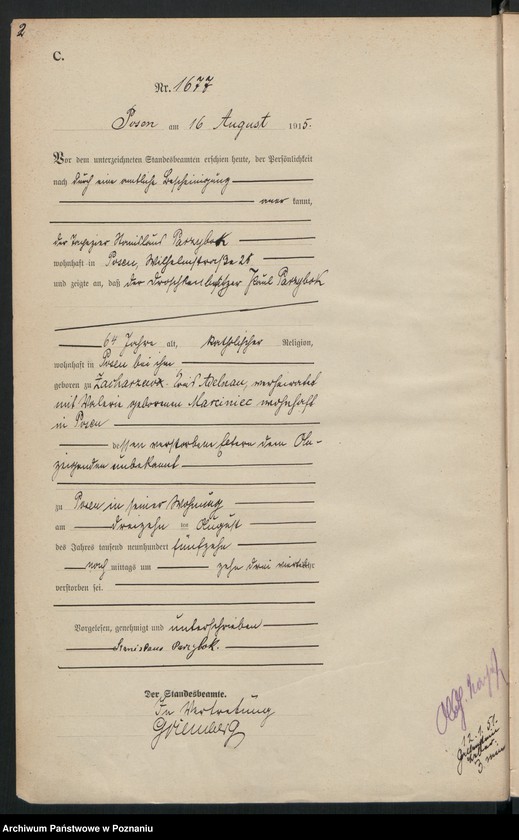 2
C.
Nr. 1677
Posen am 16 August 1915.
Vor dem unterzeichneten Standesbeamten erschien heute, der Persönlichkeit
nach durch eine amtliche Bescheinigung
aner kannt,
der Tapezier Stanislaus Parzybok
wohnhaft in Posen, Wilhelmstraße 25
und zeigte an, daß der Droschkenbesitzer Paul Parzybok
64 Jahre alt, katholischer Religion,
wohnhaft in Posen bei ihm
geboren zu Kreis Adelnau, verheiratet
mit Valerie geborenen Marciniec wohnhaft
in Posen
dessen verstorbene Eltern dem An-
zeigenden unbekannt
zu Posen in seiner Wohnung
am dreizehn ten August
des Jahres tausend neunhundert fünfzehn
nach mittags um zehn drei viertel Uhr
verstorben sei.
Vorgelesen, genehmigt und unterschrieben
Stanislaus Parzybok.
Der Standesbeamte.
In Vertretung
12.1.51.
Archiwum Państwowe w Poznaniu